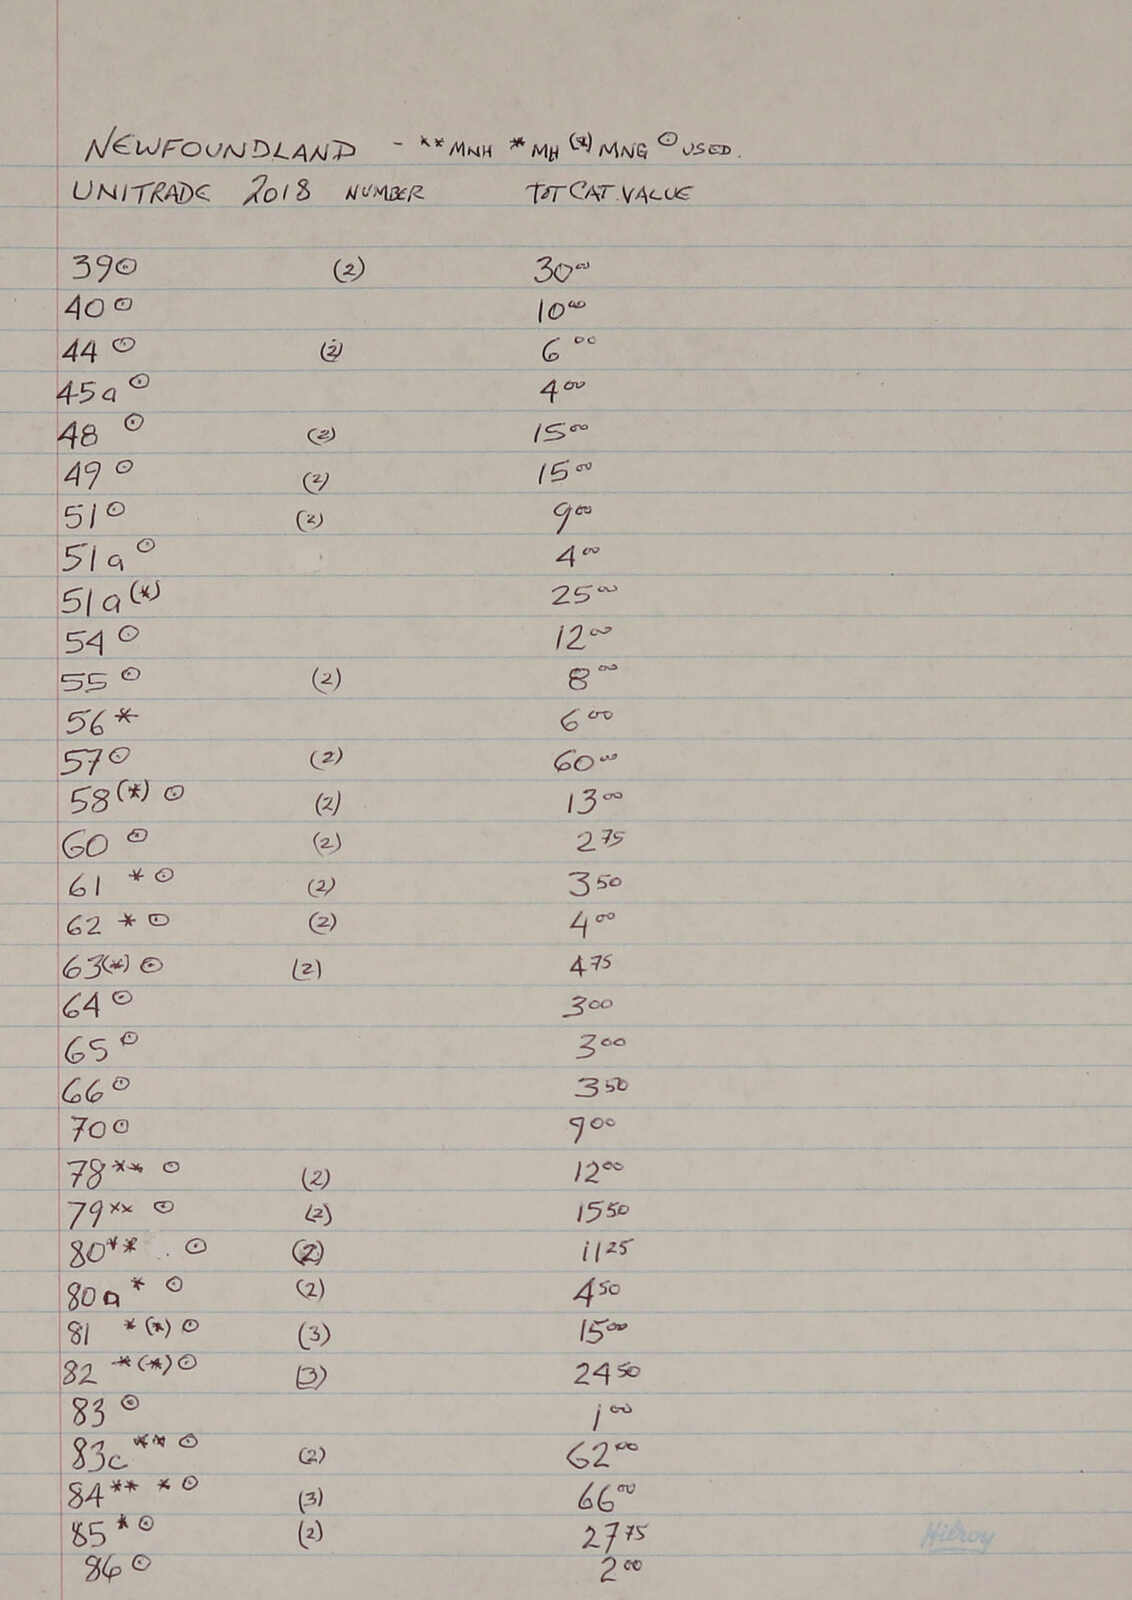 NEWFOUNDLAND - **MNH *MH (*)MNG ⊙USED.
UNITRADE 2018 NUMBER TOT CAT. VALUE
39⊙ (2) 30⁰⁰
40⊙ 10⁰⁰
44⊙ (2) 6⁰⁰
45a⊙ 4⁰⁰
48⊙ (2) 15⁰⁰
49⊙ (2) 15⁰⁰
51⊙ (2) 9⁰⁰
51a⊙ 4⁰⁰
51a(*) 25⁰⁰
54⊙ 12⁰⁰
55⊙ (2) 8⁰⁰
56* 6⁰⁰
57⊙ (2) 60⁰⁰
58(*)⊙ (2) 13⁰⁰
60⊙ (2) 2⁷⁵
61*⊙ (2) 3⁵⁰
62*⊙ (2) 4⁰⁰
63(*)⊙ (2) 4⁷⁵
64⊙ 3⁰⁰
65⊙ 3⁰⁰
66⊙ 3⁵⁰
70⊙ 9⁰⁰
78**⊙ (2) 12⁰⁰
79**⊙ (2) 15⁵⁰
80**⊙ (2) 11²⁵
80a*⊙ (2) 4⁵⁰
81*(*)⊙ (3) 15⁰⁰
82*(*)⊙ (3) 24⁵⁰
83⊙ 1⁰⁰
83c**⊙ (2) 62⁰⁰
84** *⊙ (3) 66⁰⁰
85*⊙ (2) 27⁷⁵
86⊙ 2⁰⁰
Hilroy